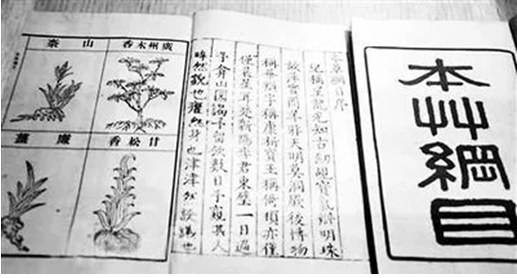 本艸綱目
本草綱目序
紀稱望龍光知古劍覘寶氣辯明珠
故萍實商羊非天明莫洞厥後博物
稱華辯字稱康析寶玉稱倚頓亦僅
僅晨星耳楚蘄陽李君東璧一日過
予弇山園謁予留飲數日予窺其人
睟然貌也癯然身也津津然譚議也
廣州木香
山柰
甘松香
廉薑